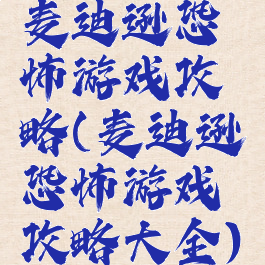 麦迪逊恐
怖游戏攻
略(麦迪逊
恐怖游戏
攻略大全)